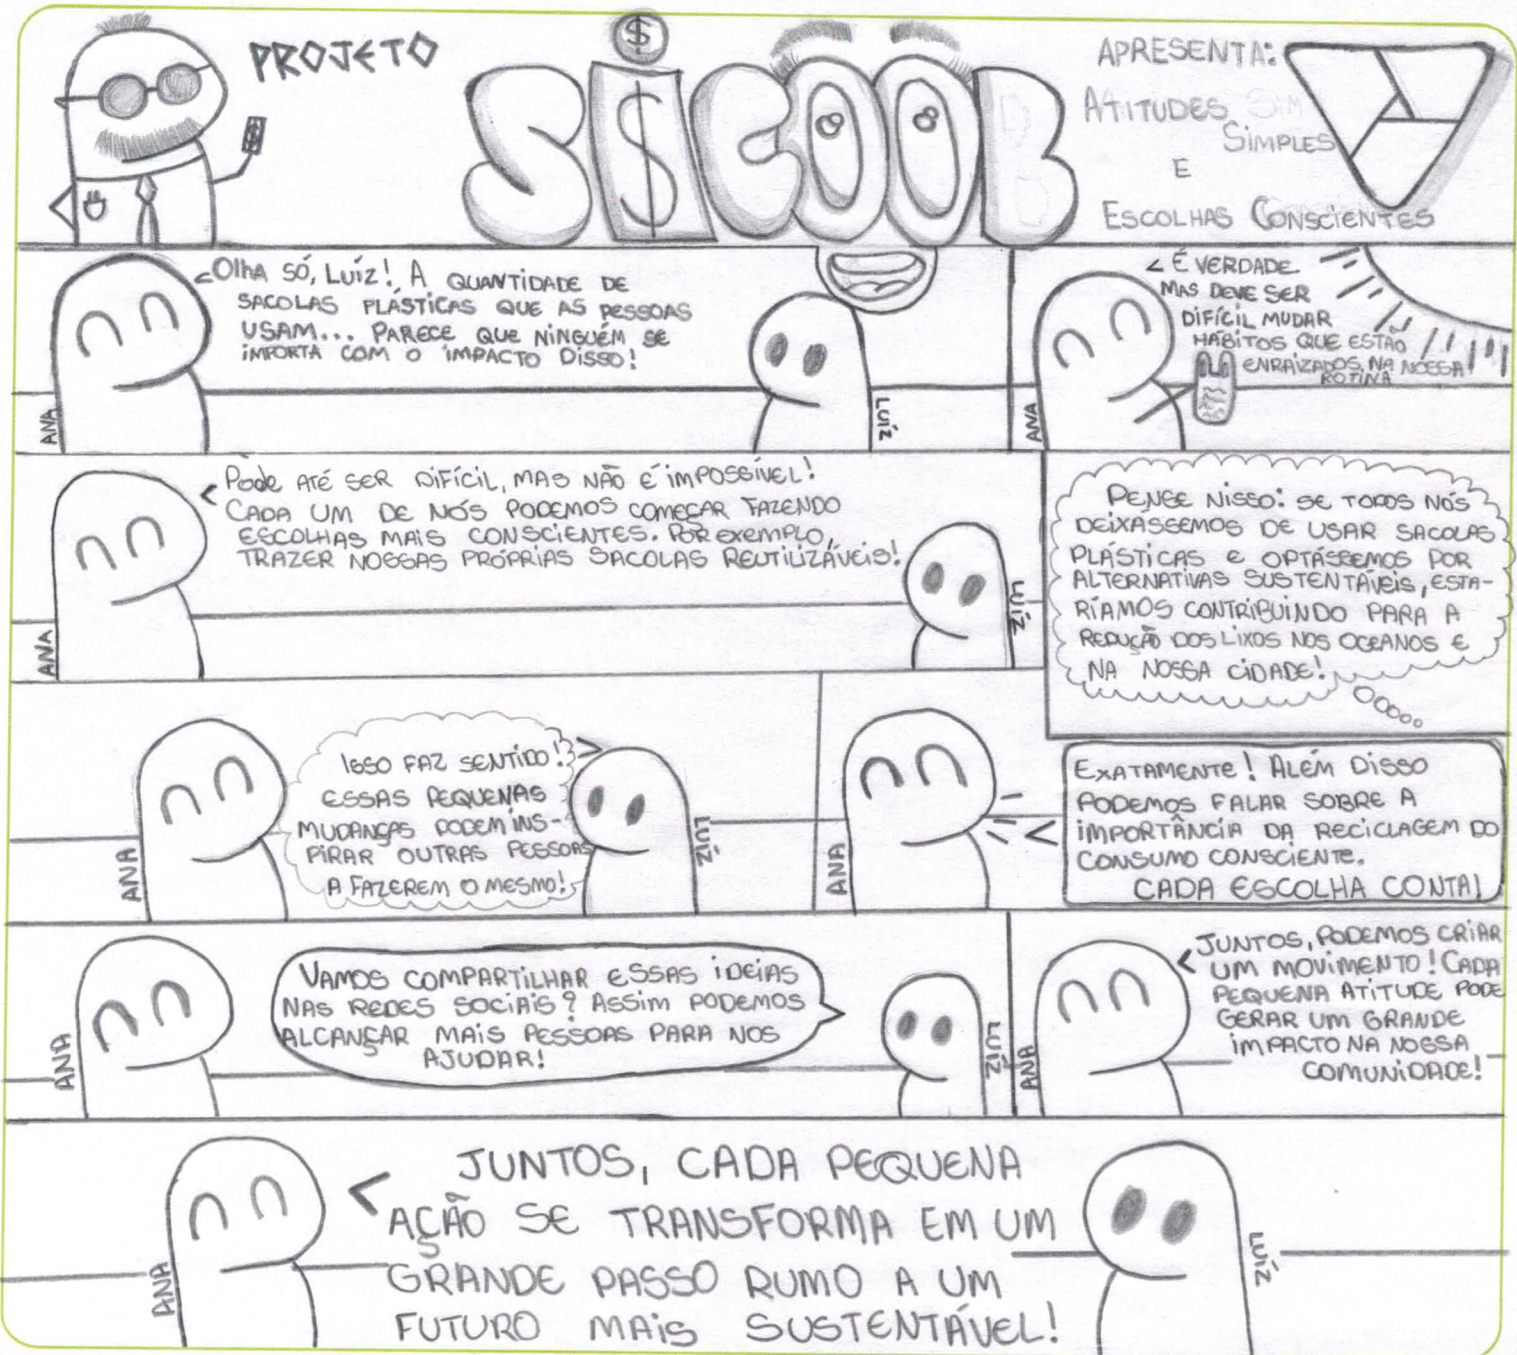 PROJETO
SiCOOB
APRESENTA:
ATITUDES
SIMPLES
E
ESCOLHAS CONSCIENTES
OlhA SÓ, LUÍZ! A QUANTIDADE DE
SACOLAS PLÁSTICAS QUE AS PESSOAS
USAM... PARECE QUE NINGUÉM SE
IMPORTA COM O IMPACTO DISSO!
ANA
LUÍZ
É VERDADE
MAS DEVE SER
DIFÍCIL MUDAR
HÁBITOS QUE ESTÃO
ENRAIZADOS NA NOSSA
ROTINA
ANA
Pode ATÉ SER DIFÍCIL, MAS NÃO É IMPOSSÍVEL!
CADA UM DE NÓS PODEMOS COMEÇAR FAZENDO
ESCOLHAS MAIS CONSCIENTES. POR exemplo,
TRAZER NOSSAS PRÓPRIAS SACOLAS REUTILIZÁVEIS!
ANA
LUÍZ
PENSE NISSO: SE TODOS NÓS
DEIXASSEMOS DE USAR SACOLAS
PLÁSTICAS E OPTÁSSEMOS POR
ALTERNATIVAS SUSTENTÁVEIS, ESTA-
RÍAMOS CONTRIBUINDO PARA A
REDUÇÃO DOS LIXOS NOS OCEANOS E
NA NOSSA CIDADE!
ISSO FAZ SENTIDO!
ESSAS PEQUENAS
MUDANÇAS PODEM INS-
PIRAR OUTRAS PESSOAS
A FAZEREM O MESMO!
ANA
LUÍZ
EXATAMENTE! ALÉM DISSO
PODEMOS FALAR SOBRE A
IMPORTÂNCIA DA RECICLAGEM DO
CONSUMO CONSCIENTE.
CADA ESCOLHA CONTA!
ANA
VAMOS COMPARTILHAR ESSAS IDEIAS
NAS REDES SOCIAIS? ASSIM PODEMOS
ALCANÇAR MAIS PESSOAS PARA NOS
AJUDAR!
ANA
LUÍZ
JUNTOS, PODEMOS CRIAR
UM MOVIMENTO! CADA
PEQUENA ATITUDE PODE
GERAR UM GRANDE
IMPACTO NA NOSSA
COMUNIDADE!
ANA
JUNTOS, CADA PEQUENA
AÇÃO SE TRANSFORMA EM UM
GRANDE PASSO RUMO A UM
FUTURO MAIS SUSTENTÁVEL!
ANA
LUÍZ